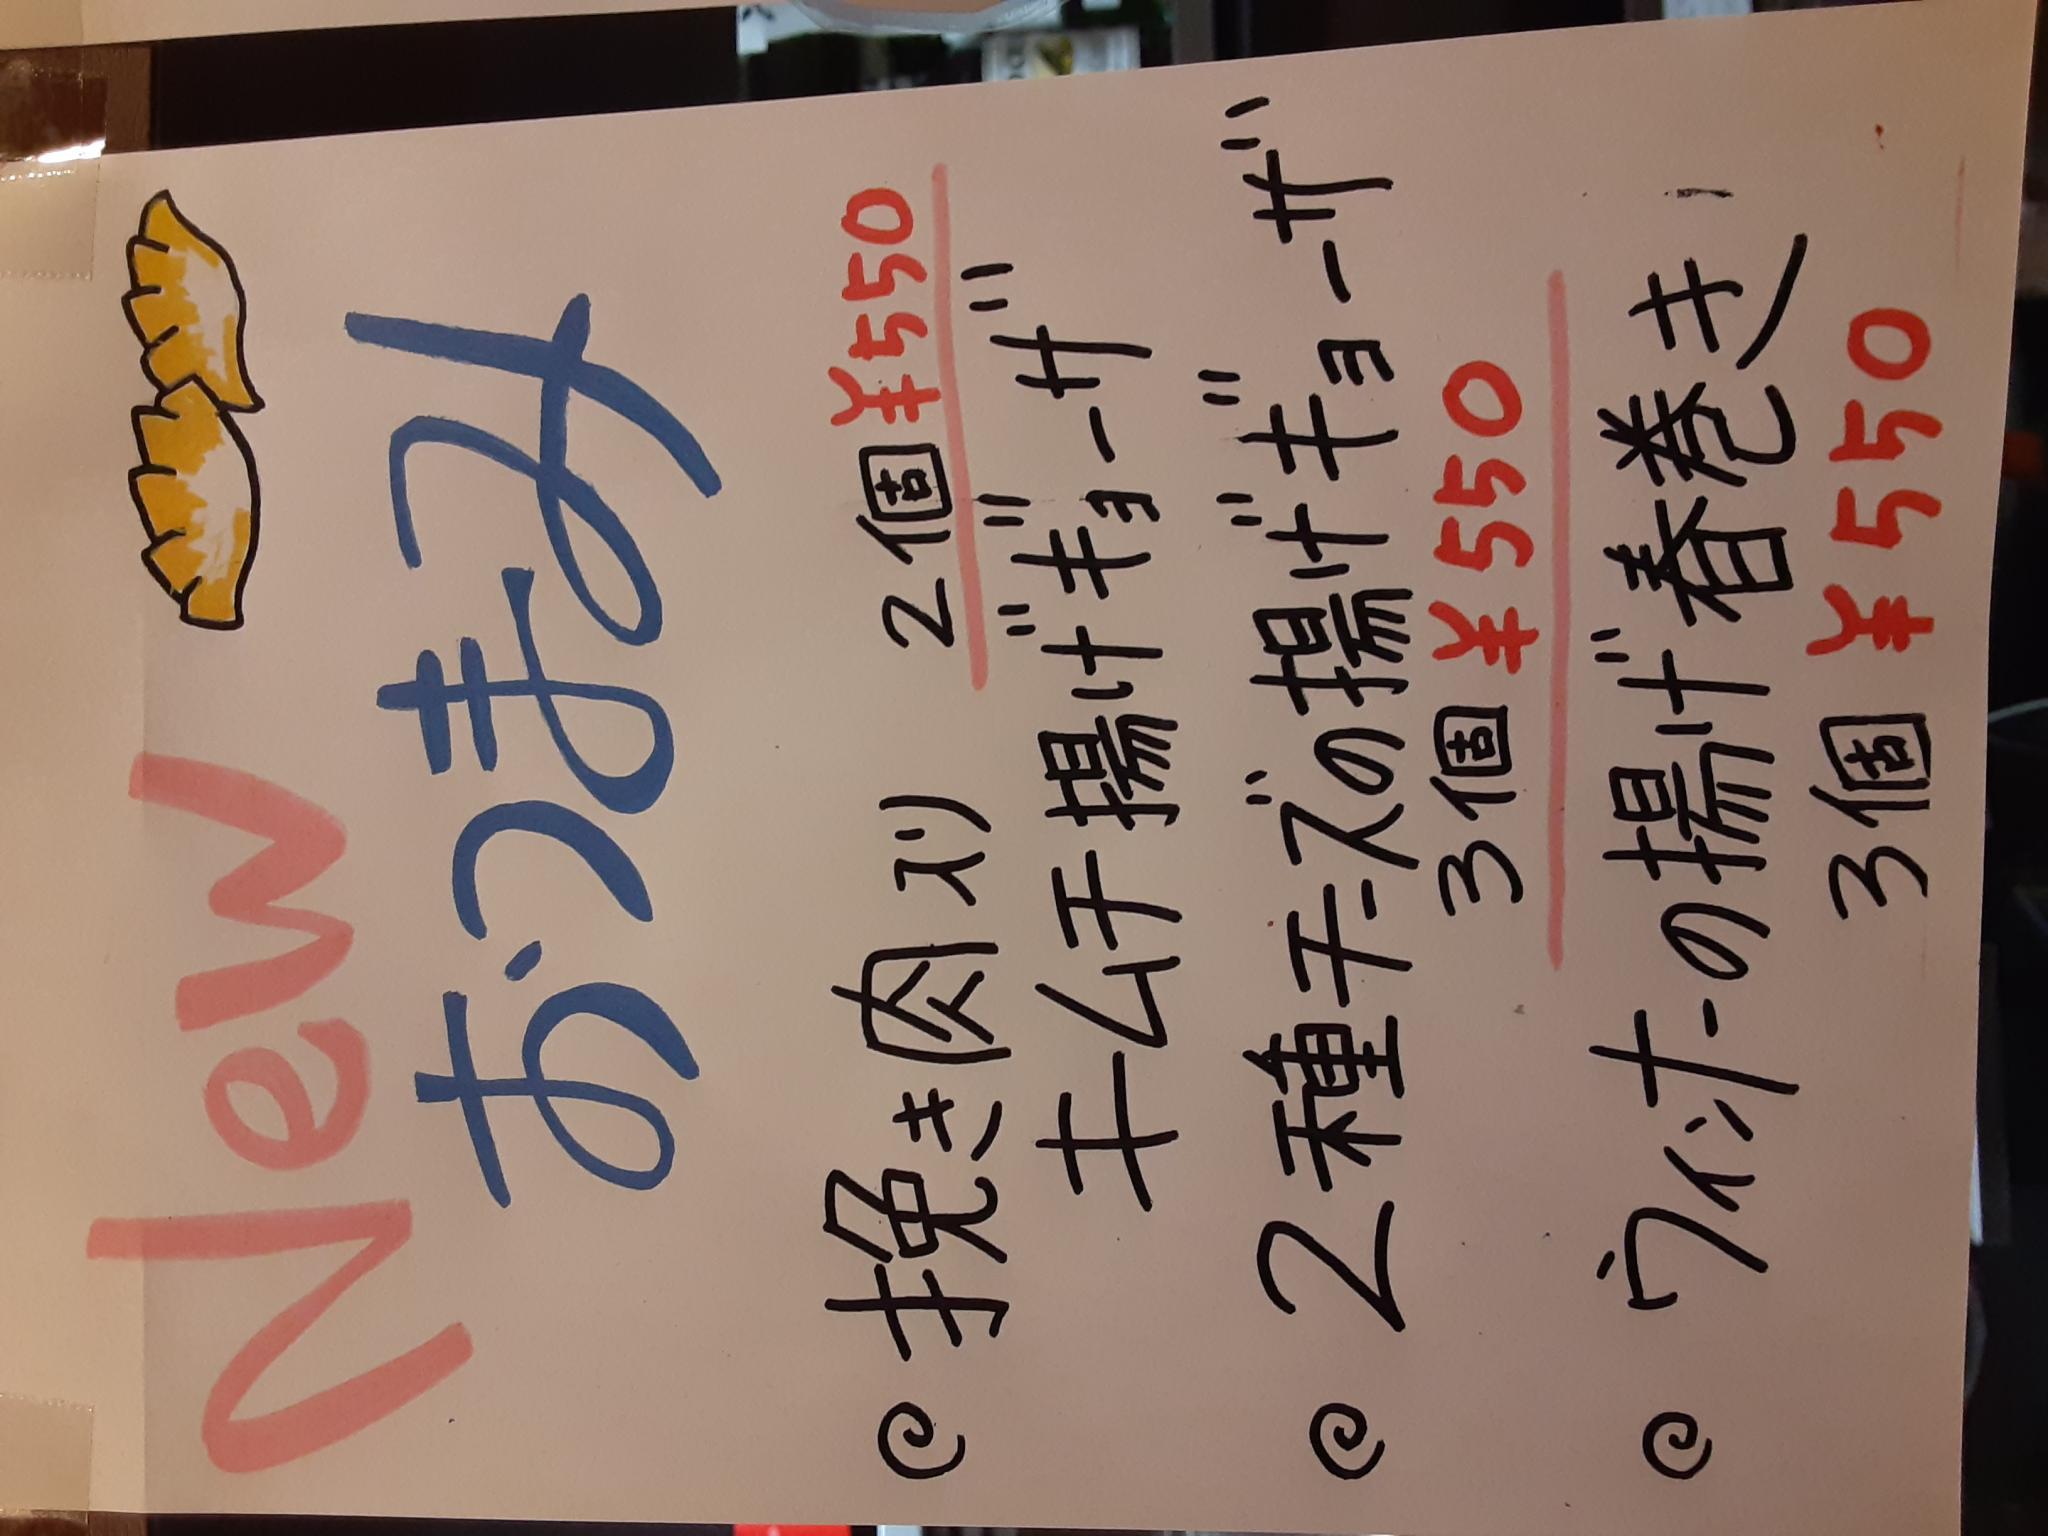 New
おつまみ
@ 挽き肉入り 2個¥550
キムチ揚げギョーザ
@ 2種チーズの揚げギョーザ
3個¥550
@ ウインナーの揚げ春巻き
3個¥550